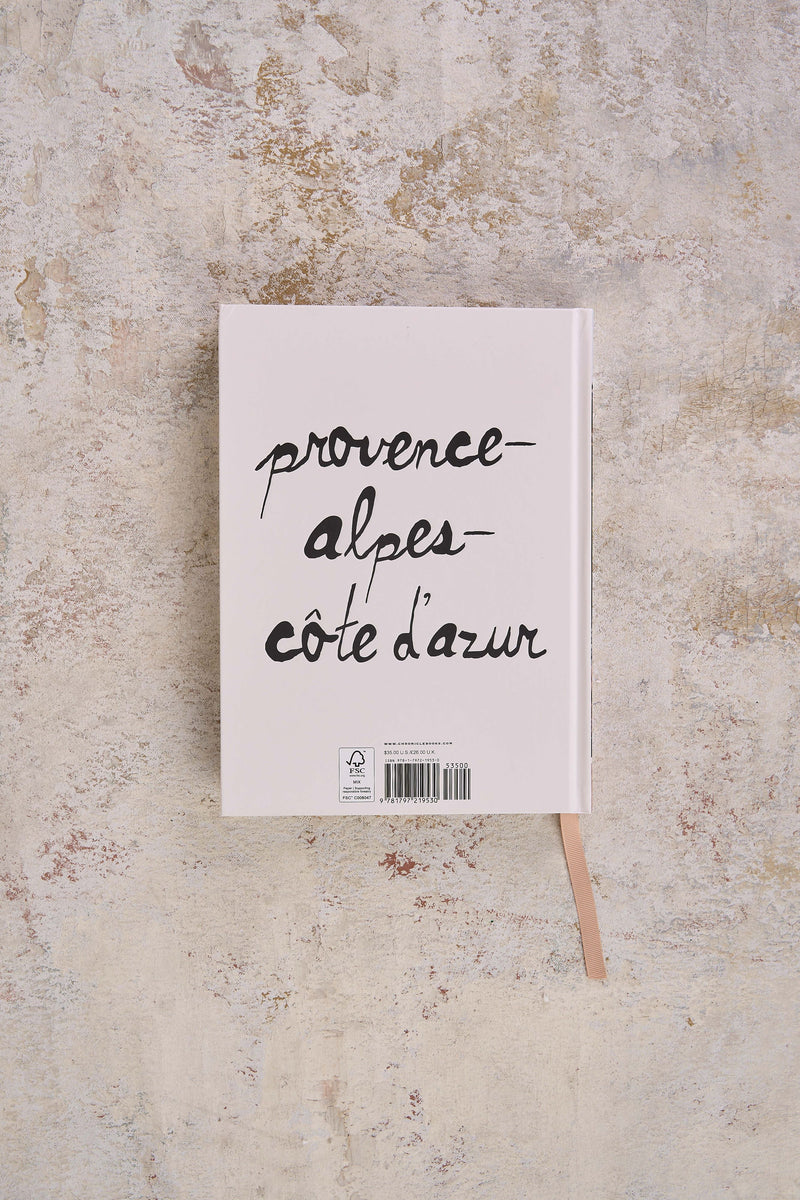 provence-
alpes-
côte d'azur
WWW.CHRONICLEBOOKS.COM
$35.00 U.S./£26.00 U.K.
ISBN 978-1-7972-1953-0
53500
9 781797 219530
FSC
www.fsc.org
MIX
Paper | Supporting
responsible forestry
FSC® C008047